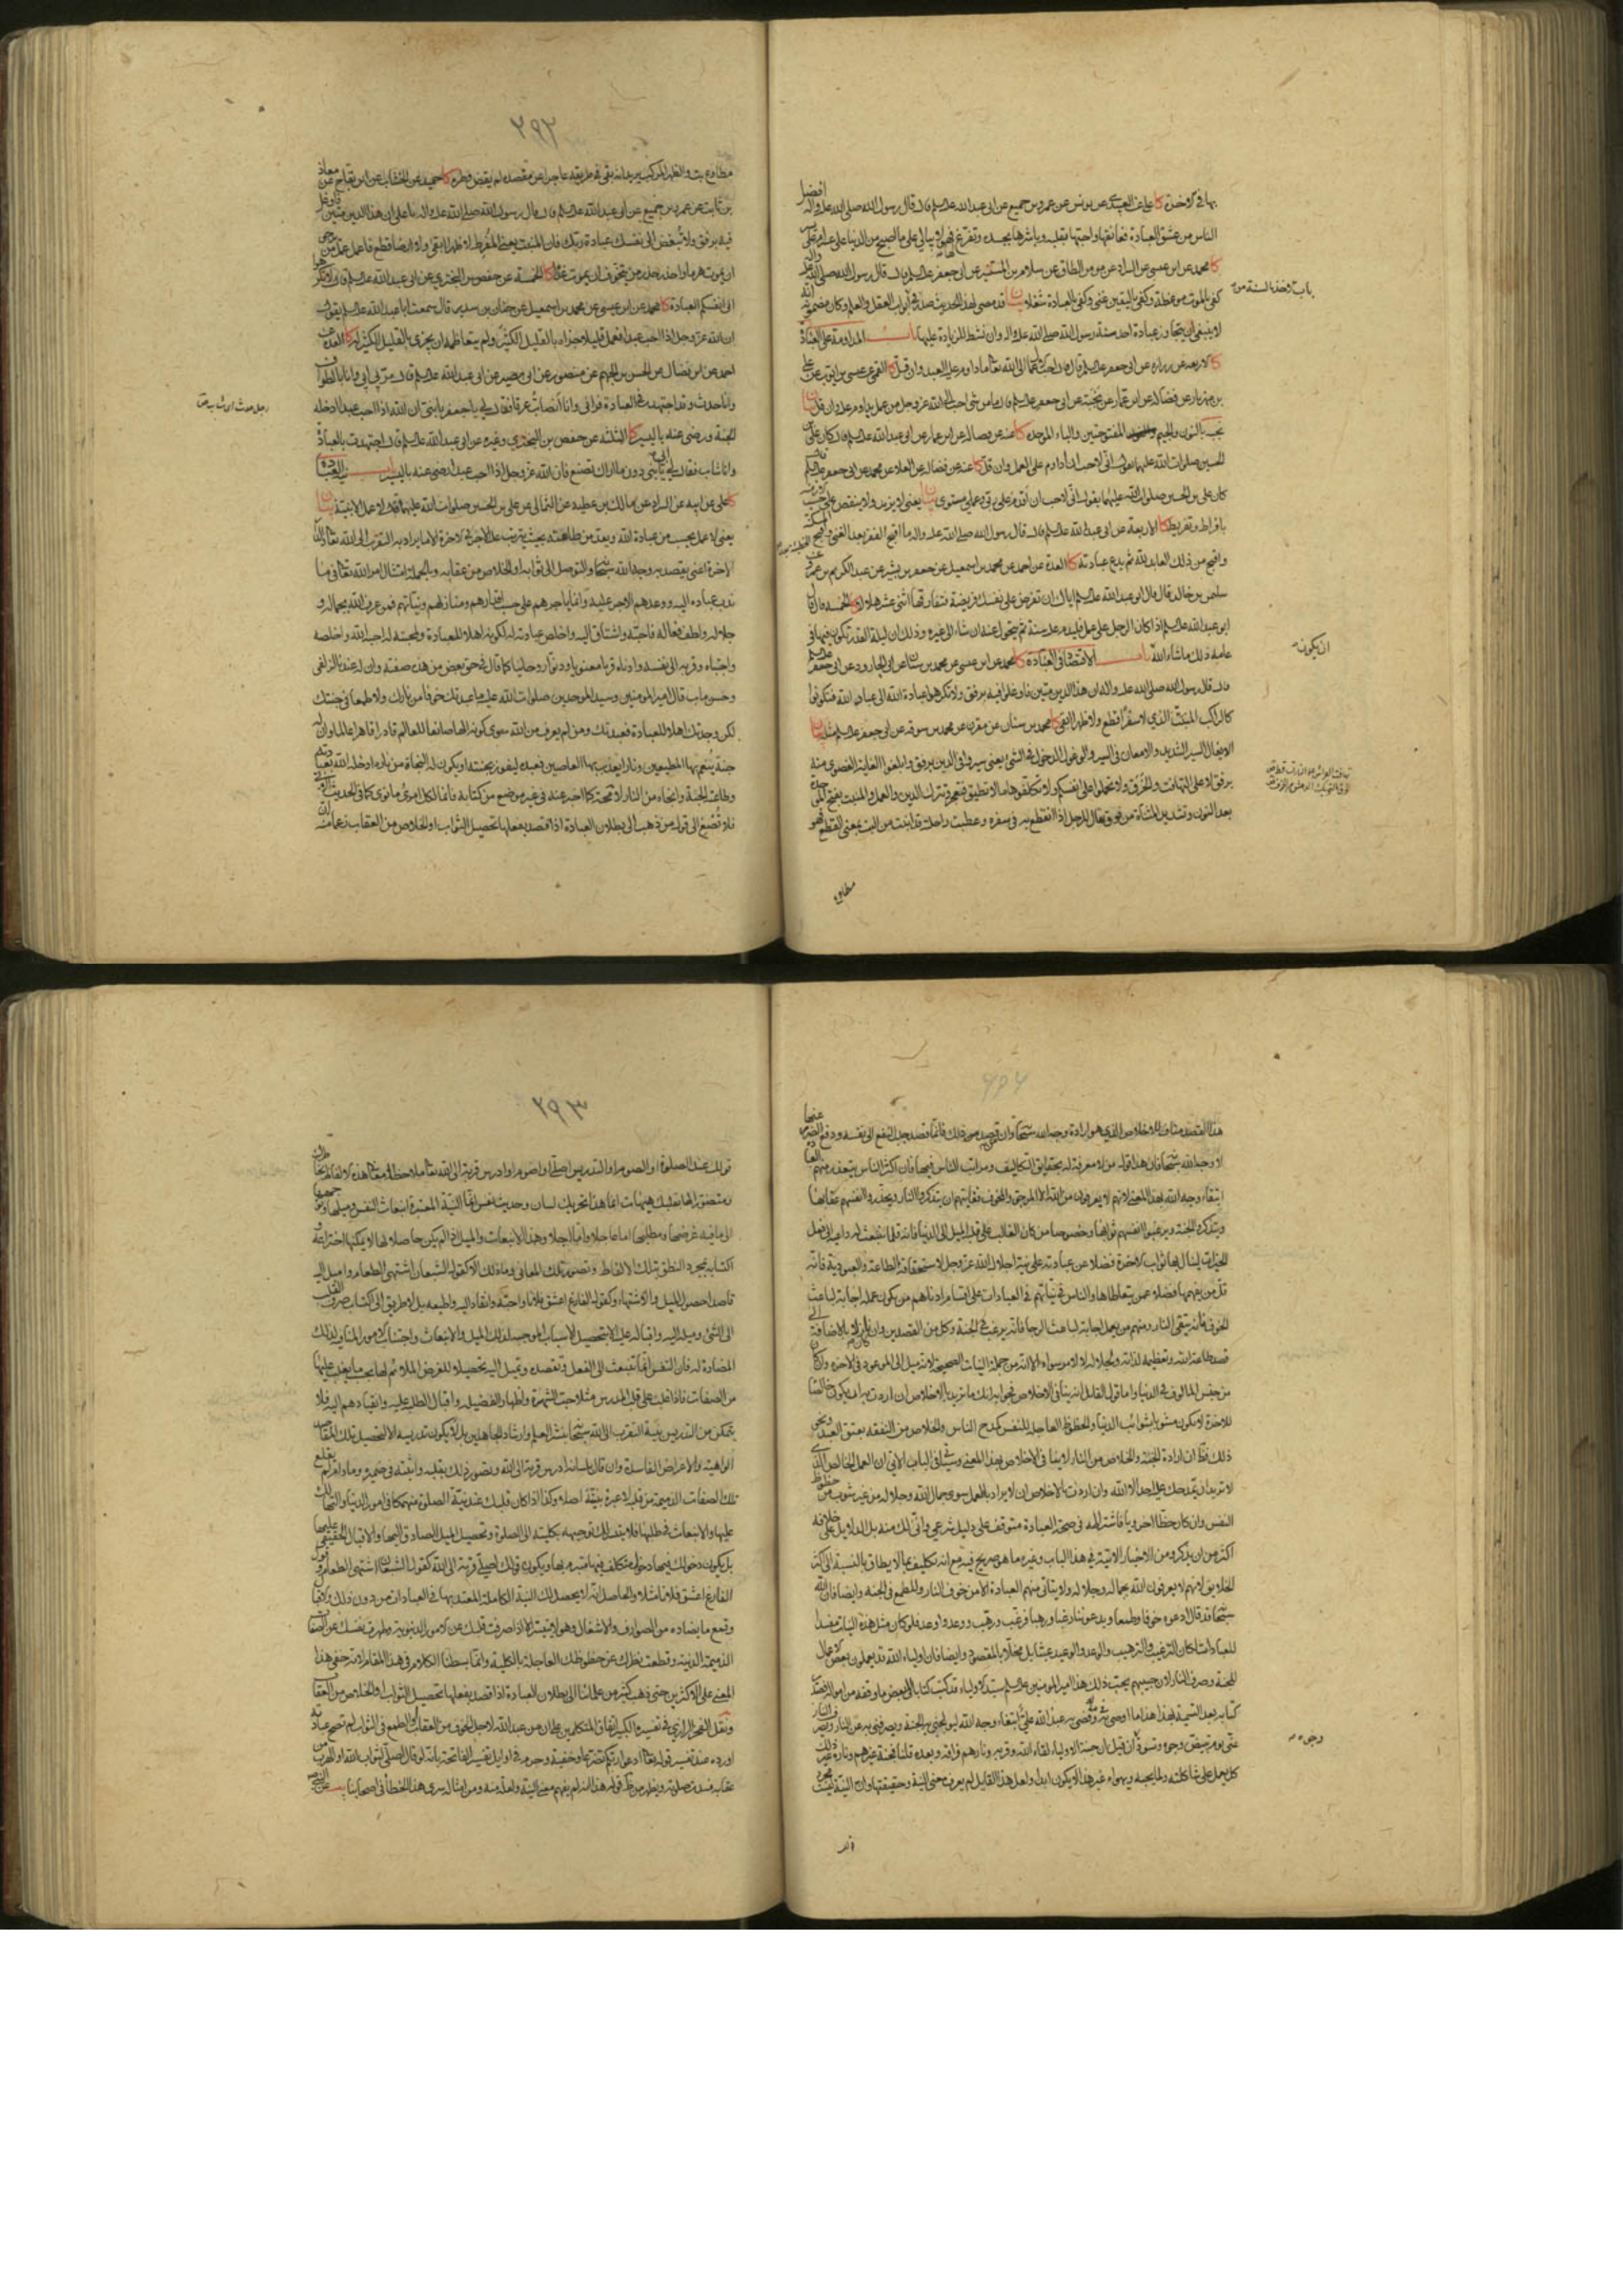 بها في الاخرة كا علي عن العبيدي عن يونس عن عمرو بن جميع عن ابي عبد الله عليه السلم قال قال رسول الله صلى الله عليه واله افضل
الناس من عشق العبادة فعانقها واحبها بقلبه وباشرها بجسده وتفرغ لها فهو لا يبالي على ما اصبح من الدنيا على عسر ام على يسر
كا محمد عن ابن عيسى عن السراد عن مومن الطاق عن سلام بن المستنير عن ابي جعفر عليه السلم قال قال رسول الله صلى الله عليه واله
كفى بالموت موعظة وكفى باليقين غنى وكفى بالعبادة شغلا بيان قد مضى لهذا الحديث صدر في ابواب العقل والعلم وكان مضمونه انه
لا ينبغي ان يتجاوز عبادة احد سنة رسول الله صلى الله عليه واله وان نشط للزيادة عليها باب المداومة على العبادة
كا الاربعة عن زرارة عن ابي جعفر عليه السلم قال قال احب الاعمال الى الله تعالى ما داوم عليه العبد وان قل كا القمي عن عيسى بن ايوب عن علي
بن مهزيار عن فضالة عن ابن عمار عن نجبة عن ابي جعفر عليه السلم قال ما من شي احب الى الله عز وجل من عمل يداوم عليه وان قل بيان
نجبة بالنون والجيم المفتوحتين والباء الموحدة كا عنه عن فضالة عن ابن عمار عن ابي عبد الله عليه السلم قال كان علي بن
الحسين صلوات الله عليهما يقول اني لاحب ان اداوم على العمل وان قل كا عنه عن فضالة عن العلاء عن محمد عن ابي جعفر عليه السلم قال
كان علي بن الحسين صلوات الله عليهما يقول اني لاحب ان اقدم على ربي وعملي مستوي بيان يعني لا يزيد ولا ينقص على حسب الازمنة
بافراط وتفريط كا الاربعة عن ابي عبد الله عليه السلم قال قال رسول الله صلى الله عليه واله ما اقبح الفقر بعد الغنى واقبح
واقبح من ذلك العابد لله ثم يدع عبادته كا العدة عن احمد عن محمد بن اسمعيل عن جعفر بن بشير عن عبد الكريم بن عمرو عن
سليمان بن خالد قال قال ابو عبد الله عليه السلم اياك ان تفرض على نفسك فريضة فتفارقها اثنى عشر هلالا كا الخمسة قال قال
ابو عبد الله عليه السلم اذا كان الرجل على عمل فليدم عليه سنة ثم يتحول عنه ان شاء الى غيره وذلك ان ليلة القدر تكون فيها في
عامه ذلك ما شاء الله باب الاقتصاد في العبادة كا محمد عن ابن عيسى عن محمد بن سنان عن ابي الجارود عن ابي جعفر عليه السلم
قال قال رسول الله صلى الله عليه واله ان هذا الدين متين فاوغلوا فيه برفق ولا تكرهوا عبادة الله الى عباد الله فتكونوا
كالراكب المنبت الذي لا سفرا قطع ولا ظهرا ابقى كا محمد بن سنان عن مقرن عن محمد بن سوقة عن ابي جعفر عليه السلم مثله بيان
الايغال السير الشديد والامعان في السير والوغول الدخول في الشي يعني سيروا في الدين برفق وابلغوا الغاية القصوى منه
برفق لا على التهافت والخرق ولا تحملوا على انفسكم ولا تكلفوها ما لا تطيق فتعجز وتترك الدين والعمل والمنبت بفتح الموحدة
بعد النون وتشديد المثناة من فوق يقال للرجل اذا انقطع به في سفره وعطبت راحلته قد انبت من البت بمعنى القطع فهو
مطاوع
باب الاخذ بالسنة منه
ان يكون
۲۹۲
مطاوع بت والظهر المركب يريد انه بقي في طريقه عاجزا عن مقصده لم يقض وطره كا حميد عن الخشاب عن ابن بقاح عن معاذ
بن ثابت عن عمرو بن جميع عن ابي عبد الله عليه السلم قال قال رسول الله صلى الله عليه واله يا علي ان هذا الدين متين فاوغل
فيه برفق ولا تبغض الى نفسك عبادة ربك فان المنبت يعني المفرط لا ظهرا ابقى ولا ارضا قطع فاعمل عمل من يرجو
ان يموت هرما واحذر حذر من يتخوف ان يموت غدا كا الخمسة عن حفص بن البختري عن ابي عبد الله عليه السلم قال لا تكرهوا
الى انفسكم العبادة كا محمد عن ابن عيسى عن محمد بن اسمعيل عن حنان بن سدير قال سمعت ابا عبد الله عليه السلم يقول
ان الله عز وجل اذا احب عبدا فعمل قليلا جزاه بالقليل الكثير ولم يتعاظمه ان يجزي بالقليل الكثير له كا العدة عن
احمد عن ابن فضال عن الحسن بن الجهم عن منصور عن ابي بصير عن ابي عبد الله عليه السلم قال مر بي ابي وانا بالطواف
وانا حدث وقد اجتهدت في العبادة فراني وانا اتصاب عرقا فقال لي يا جعفر يا بني ان الله اذا احب عبدا ادخله
الجنة ورضي عنه باليسير كا الثلثة عن حفص بن البختري وغيره عن ابي عبد الله عليه السلم قال اجتهدت بالعبادة
وانا شاب فقال لي ابي يا بني دون ما اراك تصنع فان الله عز وجل اذا احب عبدا رضي عنه باليسير باب نية العبادة
كا علي عن ابيه عن السراد عن مالك بن عطية عن الثمالي عن علي بن الحسين صلوات الله عليهما قال لا عمل الا بنية بيان
يعني لا عمل يحسب من عبادة الله ويعد من طاعته بحيث يترتب عليه الاجر في الاخرة الا ما يراد به التقرب الى الله تعالى والدار
الاخرة اعني يقصد به وجه الله سبحانه او التوصل الى ثوابه او الخلاص من عقابه وبالجملة امتثال امر الله تعالى فيما
ندب عباده اليه ووعدهم الاجر عليه وانما ياجرهم على حسب اقدارهم ومنازلهم ونياتهم فمن عرف الله بجماله و
جلاله ولطف فعاله فاحبه واشتاق اليه واخلص عبادته له لكونه اهلا للعبادة ولمحبته له احبه الله واخلصه
واجتباه وقربه الى نفسه وادناه قربا معنويا ودنوا روحانيا كما قال في حق بعض من هذه صفته وان له عندنا لزلفى
وحسن ماب قال امير المؤمنين وسيد الموحدين صلوات الله عليه ما عبدتك خوفا من نارك ولا طمعا في جنتك
لكن وجدتك اهلا للعبادة فعبدتك ومن لم يعرف من الله سوى كونه الها صانعا للعالم قادرا قاهرا عالما وان له
جنة ينعم بها المطيعين ونارا يعذب بها العاصين فعبده ليفوز بجنته او يكون له النجاة من ناره ادخله الله تعالى بعبادته
وطاعته الجنة وانجاه من النار لا محالة كما اخبر عنه في غير موضع من كتابه فانما لكل امرئ ما نوى كما في الحديث الاتي
فلا تصغ الى قول من ذهب الى بطلان العبادة اذا قصد بفعلها تحصيل الثواب او الخلاص من العقاب زعما منه ان
هذا القصد مناف للاخلاص الذي هو ارادة وجه الله سبحانه وان من قصد ذلك فانما قصد جلب النفع الى نفسه ودفع الضرر عنها
لا وجه الله سبحانه فان هذا قول من لا معرفة له بحقايق التكاليف ومراتب الناس فيها فان اكثر الناس يتعذر منهم العبادة
ابتغاء وجه الله بهذا المعنى لانهم لا يعرفون من الله الا المرجو والمخوف فغايتهم ان يتذكروا النار ويحذروا انفسهم عقابها
ويتذكروا الجنة ويرغبوا انفسهم ثوابها وخصوصا من كان الغالب على قلبه الميل الى الدنيا فانه قلما تنبعث له داعية الى فعل
الخيرات لينال بها ثواب الاخرة فضلا عن عبادته على نية اجلال الله عز وجل لاستحقاقه الطاعة والعبودية فانه
قل من يفهمها فضلا عمن يتعاطاها والناس في نياتهم في العبادات على اقسام ادناهم من يكون عمله اجابة لباعث
الخوف فانه يتقي النار ومنهم من يعمل اجابة لباعث الرجا فانه يرغب في الجنة وكل من القصدين وان كان نازلا بالاضافة الى
قصد طاعة الله وتعظيمه لذاته ولجلاله لا لامر سواه الا انه من جملة النيات الصحيحة لانه ميل الى الموعود في الاخرة وان كان
من جنس المالوف في الدنيا واما قول القايل انه ينافي الاخلاص فجوابه انك ما تريد بالاخلاص ان اردت به ان يكون خالصا
للاخرة لا يكون مشوبا بشوائب الدنيا والحظوظ العاجلة للنفس كمدح الناس والخلاص من النفقة بعتق العبد ونحو
ذلك فظاهر ان ارادة الجنة والخلاص من النار لا ينافي الاخلاص بهذا المعنى وسياتي في الباب الاتي ان العمل الخالص الذي
لا تريد ان يمدحك عليه احد الا الله وان اردت بالاخلاص ان لا يراد بالعمل سوى جمال الله وجلاله من غير شوب من حظوظ
النفس وان كان حظا اخرويا فاشتراطه في صحة العبادة متوقف على دليل شرعي وانى لك منه بل الدلايل على خلافه
اكثر من ان يذكر ومن الاخبار الاتية في هذا الباب وغيره ما هو صريح فيه مع انه تكليف بما لا يطاق بالنسبة الى اكثر
الخلايق لانهم لا يعرفون الله بجماله وجلاله ولا يتاتى منهم العبادة الا من خوف النار والطمع في الجنة وايضا فان الله
سبحانه قد قال ادعوه خوفا وطمعا ويدعوننا رغبا ورهبا فرغب ورهب ووعد واوعد فلو كان مثل هذه النيات مفسدا
للعبادات لكان الترغيب والترهيب والوعد والوعيد عبثا بل مخلا بالمقصود وايضا فان اولياء الله قد يعملون بعض الاعمال
للجنة وصرف النار لان حبيبهم يحب ذلك هذا امير المؤمنين عليه السلم سيد الاولياء قد كتب كتابا لبعض ما وقفه من امواله فصدر
كتابه بعد التسمية بهذا هذا ما اوصى به وقضى به عبد الله علي ابتغاء وجه الله ليولجني به الجنة ويصرفني به عن النار ويصرف النار
عني يوم تبيض وجوه وتسود وجوه
كل يعمل على شاكلته ولما يحبه ويهواه غير هذا لا يكون ابدا ولعل هذا القايل لم يعرف معنى النية وحقيقتها وان النية ليست مجرد
وجوه
۲۹۳
قولك عند الصلوة او الصوم او التدريس اصلي او اصوم او ادرس قربة الى الله تعالى ملاحظا معاني هذه الالفاظ بخاطرك
ومتصورا لها بقلبك هيهات انما هذا تحريك لسان وحديث نفس انما النية المعتبرة انبعاث النفس وميلها وتوجهها
الى ما فيه غرضها ومطلبها اما عاجلا واما اجلا وهذا الانبعاث والميل اذا لم يكن حاصلا لها لا يمكنها اختراعه و
اكتسابه بمجرد النطق بتلك الالفاظ وتصور تلك المعاني وما ذلك الا كقول الشبعان اشتهي الطعام واميل اليه
قاصدا حصول الميل والاشتهاء وكقول الفارغ اعشق فلانا واحبه وانقاد اليه واطيعه بل لا طريق الى اكتساب صرف القلب
الى الشئ وميله اليه واقباله عليه الا بتحصيل الاسباب الموجبة لذلك الميل والانبعاث واجتناب الامور المنافية لذلك
المضادة له فان النفس انما تنبعث الى الفعل وتقصده وتميل اليه تحصيلا للغرض الملائم لها بحسب ما يغلب عليها
من الصفات فاذا غلب على قلب المدرس مثلا حب الشهرة واظهار الفضيلة واقبال الطلبة عليه وانقيادهم اليه فلا
يتمكن من التدريس بنية التقرب الى الله سبحانه بنشر العلم وارشاد الجاهلين بل لا يكون تدريسه الا لتحصيل تلك المقاصد
الواهية والاغراض الفاسدة وان قال بلسانه ادرس قربة الى الله وتصور ذلك بقلبه واثبته في ضميره وما دام لم يقلع
تلك الصفات الذميمة من قلبه لا عبرة بنيته اصلا وكذا اذا كان قلبك عند نية الصلوة منهمكا في امور الدنيا والتهالك
عليها والانبعاث في طلبها فلا يتيسر لك توجيهه بكليته الى الصلوة وتحصيل الميل الصادق اليها والاقبال الحقيقي عليها
بل يكون دخولك فيها دخول متكلف لها متبرم بها ويكون قولك اصلي قربة الى الله كقول الشبعان اشتهي الطعام وقول
الفارغ اعشق فلانا مثلا والحاصل انه لا يحصل لك النية الكاملة المعتد بها في العبادات من دون ذلك الاقبال
وقمع ما يضاده من الصوارف والاشغال وهو لا يتيسر الا اذا صرفت قلبك عن الامور الدنيوية وطهرت نفسك عن الصفات
الذميمة الدنية وقطعت نظرك عن حظوظك العاجلة بالكلية وانما بسطنا الكلام في هذا المقام لانه خفي هذا
المعنى على الاكثرين حتى ذهب كثير من علمائنا الى بطلان العبادة اذا قصد بفعلها تحصيل الثواب او الخلاص من العقاب
ونقل الفخر الرازي في تفسيره الكبير اتفاق المتكلمين على ان من عبد الله لاجل الخوف من العقاب او الطمع في الثواب لم تصح عبادته
اورده عند تفسير قوله تعالى ادعوا ربكم تضرعا وخفية وجزم في اوايل تفسير الفاتحة بانه لو قال اصلي لثواب الله او للهرب من
عقابه فسدت صلوته